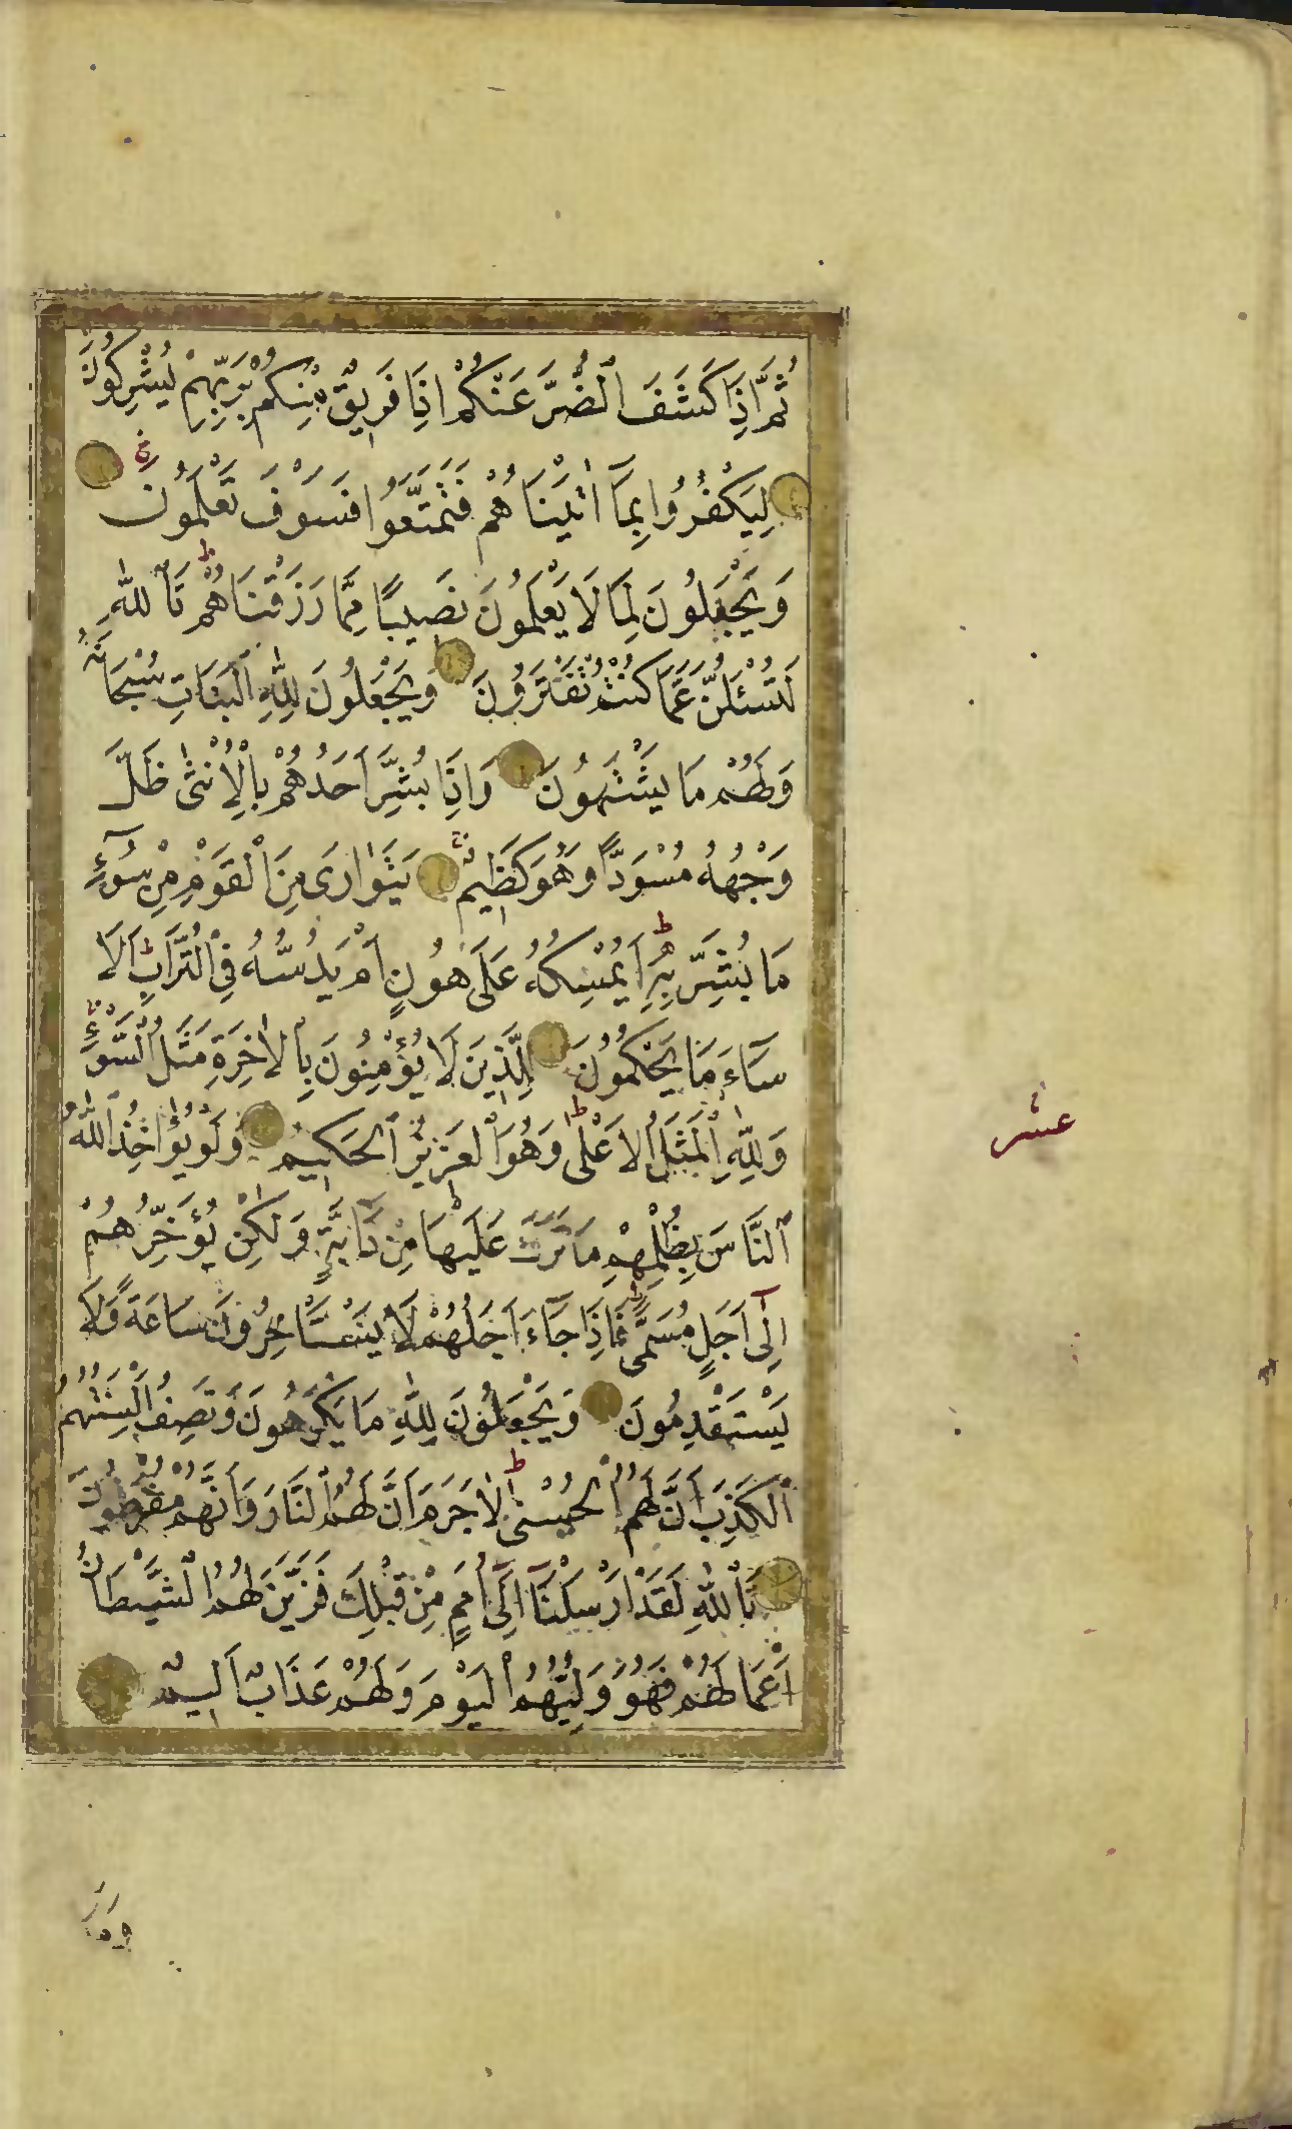 ثُمَّ اِذَا كَشَفَ الضُّرَّ عَنْكُمْ اِذَا فَرِيقٌ مِنْكُمْ بِرَبِّهِمْ يُشْرِكُونَ
لِيَكْفُرُوا بِمَا اٰتَيْنَاهُمْ فَتَمَتَّعُوا فَسَوْفَ تَعْلَمُونَ
وَيَجْعَلُونَ لِمَا لَا يَعْلَمُونَ نَصِيبًا مِمَّا رَزَقْنَاهُمْ تَاللّٰهِ
لَتُسْئَلُنَّ عَمَّا كُنْتُمْ تَفْتَرُونَ وَيَجْعَلُونَ لِلّٰهِ الْبَنَاتِ سُبْحَانَهُ
وَلَهُمْ مَا يَشْتَهُونَ وَاِذَا بُشِّرَ اَحَدُهُمْ بِالْاُنْثٰى ظَلَّ
وَجْهُهُ مُسْوَدًّا وَهُوَ كَظِيمٌ يَتَوَارٰى مِنَ الْقَوْمِ مِنْ سُوٓءِ
مَا بُشِّرَ بِهِ اَيُمْسِكُهُ عَلٰى هُونٍ اَمْ يَدُسُّهُ فِي التُّرَابِ اَلَا
سَآءَ مَا يَحْكُمُونَ لِلَّذِينَ لَا يُؤْمِنُونَ بِالْاٰخِرَةِ مَثَلُ السَّوْءِ
وَلِلّٰهِ الْمَثَلُ الْاَعْلٰى وَهُوَ الْعَزِيزُ الْحَكِيمُ وَلَوْ يُؤَاخِذُ اللّٰهُ
النَّاسَ بِظُلْمِهِمْ مَا تَرَكَ عَلَيْهَا مِنْ دَآبَّةٍ وَلٰكِنْ يُؤَخِّرُهُمْ
اِلٰٓى اَجَلٍ مُسَمًّى فَاِذَا جَآءَ اَجَلُهُمْ لَا يَسْتَأْخِرُونَ سَاعَةً وَلَا
يَسْتَقْدِمُونَ وَيَجْعَلُونَ لِلّٰهِ مَا يَكْرَهُونَ وَتَصِفُ اَلْسِنَتُهُمُ
الْكَذِبَ اَنَّ لَهُمُ الْحُسْنٰى لَا جَرَمَ اَنَّ لَهُمُ النَّارَ وَاَنَّهُمْ مُفْرَطُونَ
تَاللّٰهِ لَقَدْ اَرْسَلْنَآ اِلٰٓى اُمَمٍ مِنْ قَبْلِكَ فَزَيَّنَ لَهُمُ الشَّيْطَانُ
اَعْمَالَهُمْ فَهُوَ وَلِيُّهُمُ الْيَوْمَ وَلَهُمْ عَذَابٌ اَلِيمٌ
عشر
وما